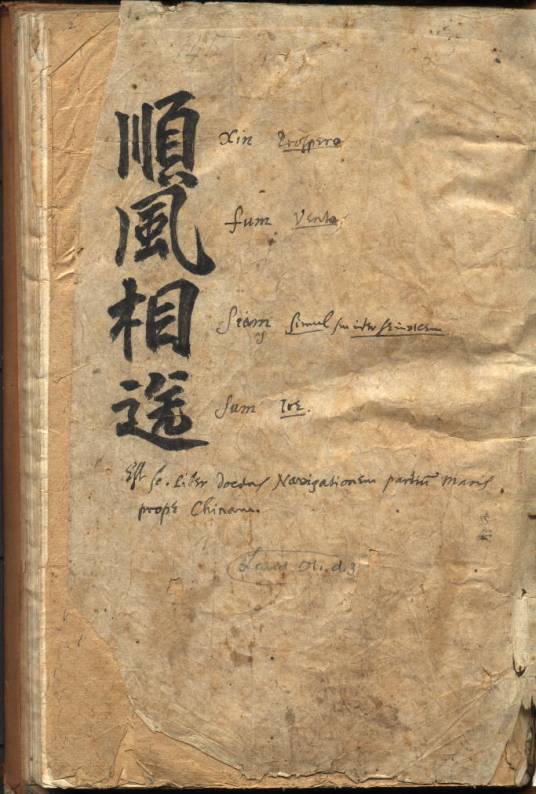 順風相送
Xin Prospero
fum Vento
Siam Simul
Sum Ire.
Est sc. Liber docens Navigationem partium Maris
prope Chinam.
Laud Or. d. 3